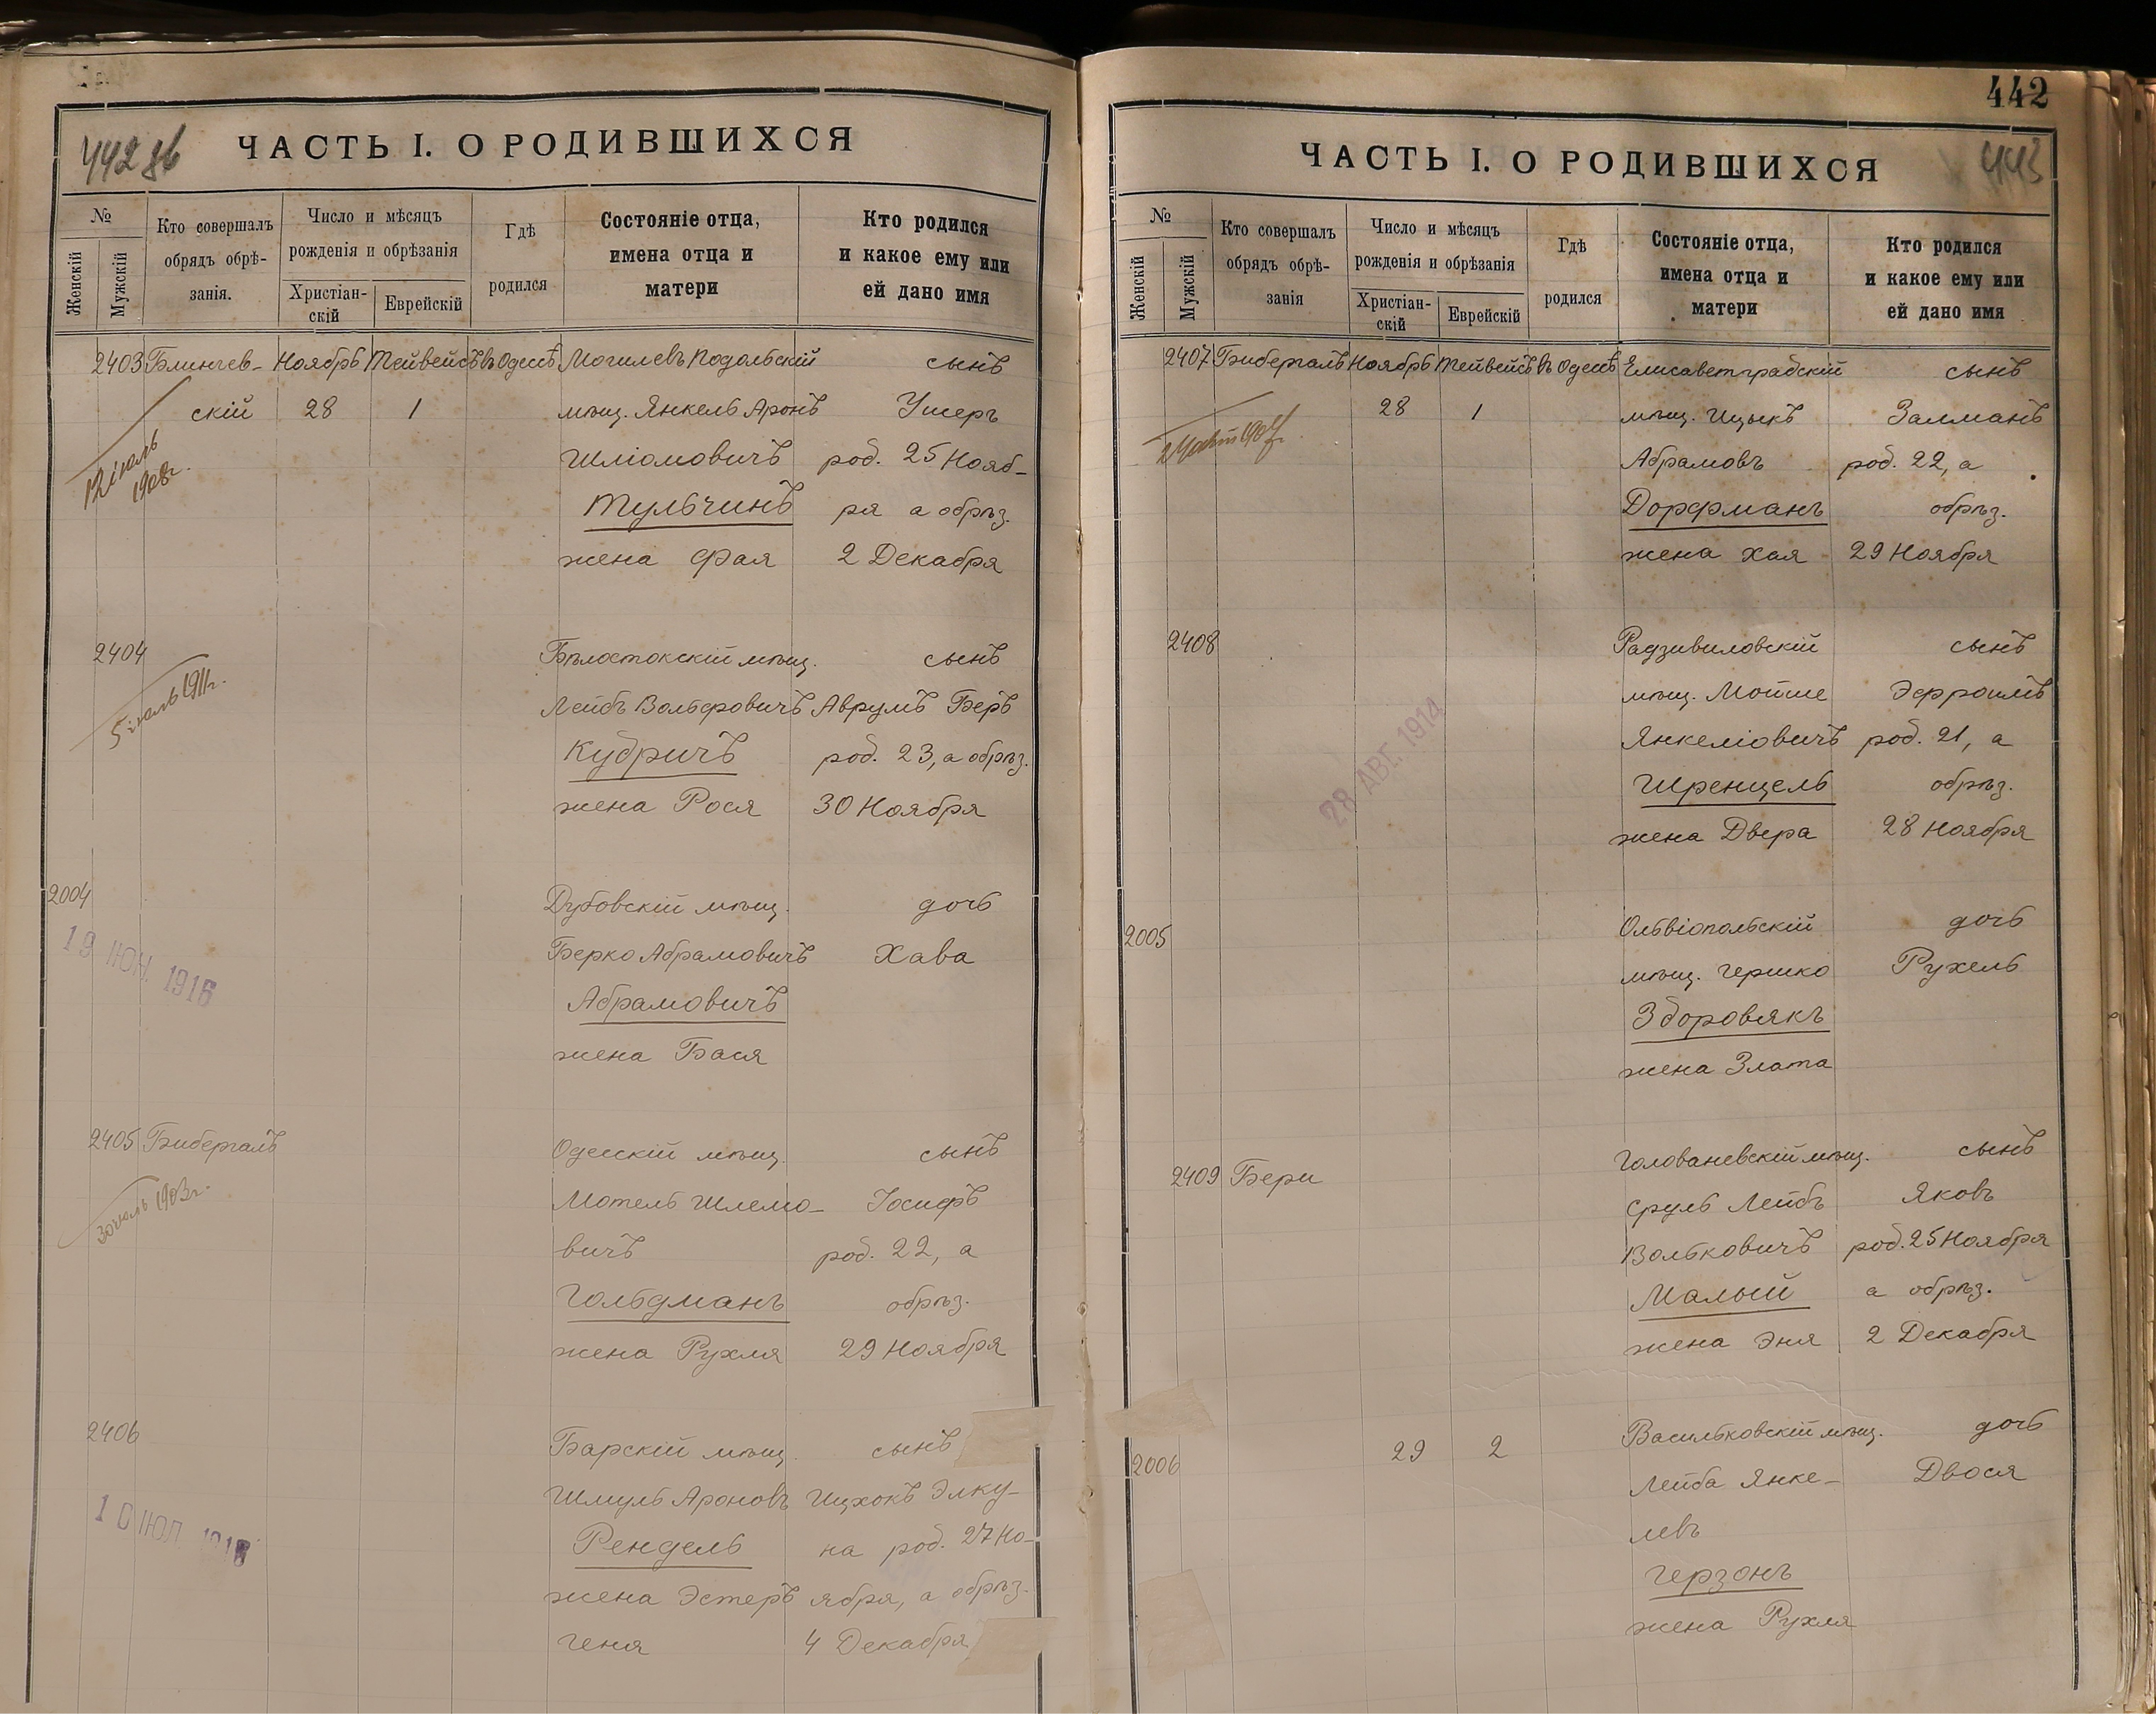 442 об
ЧАСТЬ I. О РОДИВШИХСЯ
№
Женскій
Мужскій
Кто совершалъ
обрядъ обрѣ-
занія.
Число и мѣсяцъ
рожденія и обрѣзанія
Христіан-
скій
Еврейскій
Гдѣ
родился
Состояніе отца,
имена отца и
матери
Кто родился
и какое ему или
ей дано имя
2403 Блинчев- Ноябрь Тейвейсъ въ Одессѣ Могилевъ Подольскій сынъ
скій 28 1 мѣщ. Янкель Аронъ Ушеръ
12 іюль
1908г.
Шліомовичъ род. 25 Нояб-
Тульчинъ ря а обрѣз.
жена Фая 2 Декабря
2404 Бѣлостокскій мѣщ. сынъ
5 іюль 1911г.
Лейбъ Вольфовичъ Аврумъ Беръ
Кубричъ род. 23, а обрѣз.
жена Рося 30 Ноября
2004 Дубовскій мѣщ. дочь
19 ІЮН. 1916
Берко Абрамовичъ Хава
Абрамовичъ
жена Бася
2405 Бибергалъ Одесскій мѣщ. сынъ
30 іюль 1903г.
Мотель Шлемо- Іосифъ
вичъ род. 22, а
Гольдманъ обрѣз.
жена Рухля 29 Ноября
2406 Барскій мѣщ. сынъ
Шмуль Ароновъ Ицхокъ Элку-
10 ІЮЛ
Рендель на род. 27 Но-
жена Эстеръ ября, а обрѣз.
Геня 4 Декабря
442
443
ЧАСТЬ I. О РОДИВШИХСЯ
№
Женскій
Мужскій
Кто совершалъ
обрядъ обрѣ-
занія
Число и мѣсяцъ
рожденія и обрѣзанія
Христіан-
скій
Еврейскій
Гдѣ
родился
Состояніе отца,
имена отца и
матери
Кто родился
и какое ему или
ей дано имя
2407 Бибергалъ Ноябрь Тейвейсъ въ Одессѣ Елисаветградскій сынъ
28 1 мѣщ. Ицыкъ Залманъ
Абрамовъ род. 22, а
Дорфманъ обрѣз.
жена Хая 29 Ноября
2408 Радзивиловскій сынъ
мѣщ. Мойше Эфроимъ
28 АВГ. 1914
Янкеліовичъ род. 21, а
Шренцель обрѣз.
жена Двера 28 Ноября
2005 Ольвіопольскій дочь
мѣщ. Гершко Рухель
Зборовякъ
жена Злата
2409 Бери Голованевскій мѣщ. сынъ
Сруль Лейбъ Яковъ
Вольковичъ род. 25 Ноября
Малый а обрѣз.
жена Эня 2 Декабря
2006 29 2 Васильковскій мѣщ. дочь
Лейба Янке- Двося
левъ
Герзонъ
жена Рухля